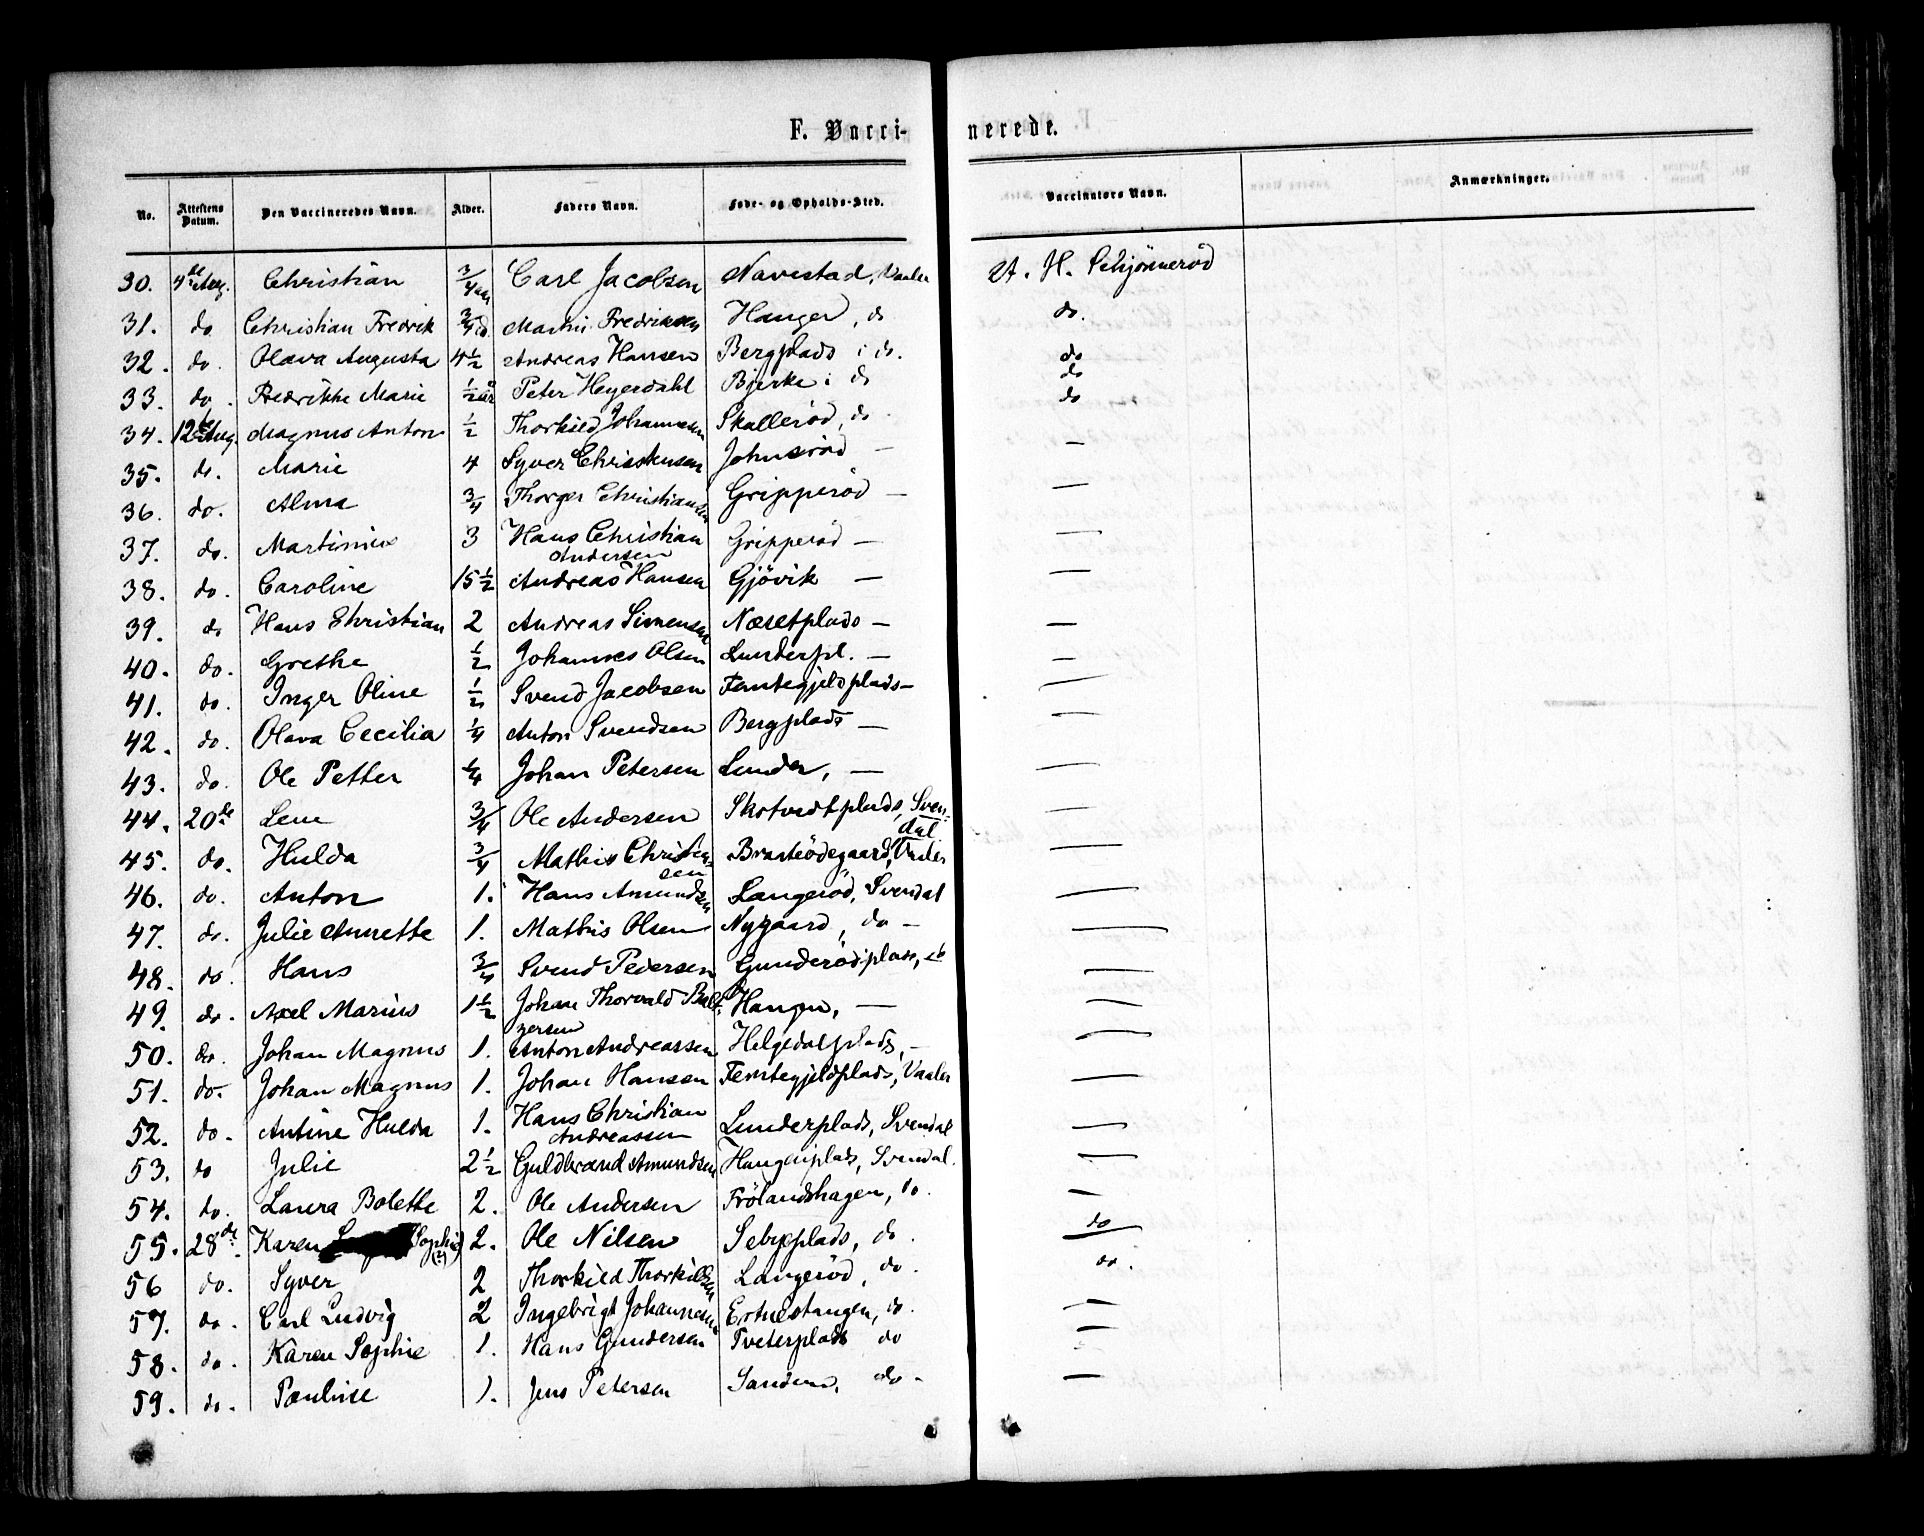 F. Vacci- nerede.
No. Attestens Datum. Den Vaccineredes Navn. Alder. Faders Navn. Føde- og Opholds-Sted. Vaccinators Navn. Anmærkninger.
30. 4de Aug. Christian 3/4 aar Carl Jacobsen Navestad, Vaaler A. H. Schjønnerød
31. do Christian Fredrik 3/4 do Martin Fredriksen Hanger, do do.
32. do. Olava Augusta 4 1/2 Andreas Hansen Bergplads i do. do
do
33. do. Fredrikke Marie 1/2 år Peter Heyerdahl Bjerke i do do
34. 12te Aug Magnus Anton 1/2 Thorkild Johannesen Skallerød, do. —
35. do. Marie 4 Syver Christensen Johnsrød —
36. do. Alma 3/4 Thorger Christiansen Gripperød — —
37. do. Martinius 3 Hans Christian Andersen Gripperød — —
38. do. Caroline 15 1/2 Andreas Hansen Gjövik — —
39. do Hans Christian 2 Andreas Simensen Næsetplads — —
40. do. Grethe 1/2 Johannes Olsen Lunderpl. — —
41. do. Inger Oline 1/2 Svend Jacobsen Femtegjeldplads — —
42. do. Olava Cecilia 1/4 Anton Svendsen Bergplads — —
43. do. Ole Petter 1/4 Johan Petersen Lunder, — —
44. 20de Lene 3/4 Ole Andersen Skotvedtplads, Svendal —
45. do. Hulda 3/4 Mathis Christensen Brasteödegaard, Vaaler —
46. do. Anton 1. Hans Amundsen Langerød, Svendal —
47. do. Julie Annette 1. Mathis Olsen Nygaard, do — —
48. do. Hans 3/4 Svend Pedersen Gunderødplads, do —
49. do. Axel Marius 1 1/2 Johan Thorvald Baltzersen Haugen, — —
50. do. Johan Magnus 1. Anton Andreassen Helgedalplads, — —
51. do. Johan Magnus 1. Johan Hansen Femtegjeldplads, Vaaler —
52. do. Antine Hulda 1. Hans Christian Andreassen Lunderplads, Svendal —
53. do Julie 2 1/2 Guldbrand Amundsen Haugenplads, Svendal. —
54. do. Laura Bolette 2. Ole Andersen Frölandshagen, do. —
55. 28de. Karen Sophie (?) 2. Ole Nilsen Sebyplads, do. do
56 do. Syver 2 Thorkild Thorkildsen Langerød, do. do.
57. do. Carl Ludvig 2 Ingebrigt Johannesen Ertnestangen, do. —
58. do. Karen Sophie 1. Hans Gundersen Tveterplads do —
59. do. Pauline 1. Jens Petersen Sanden, do. —